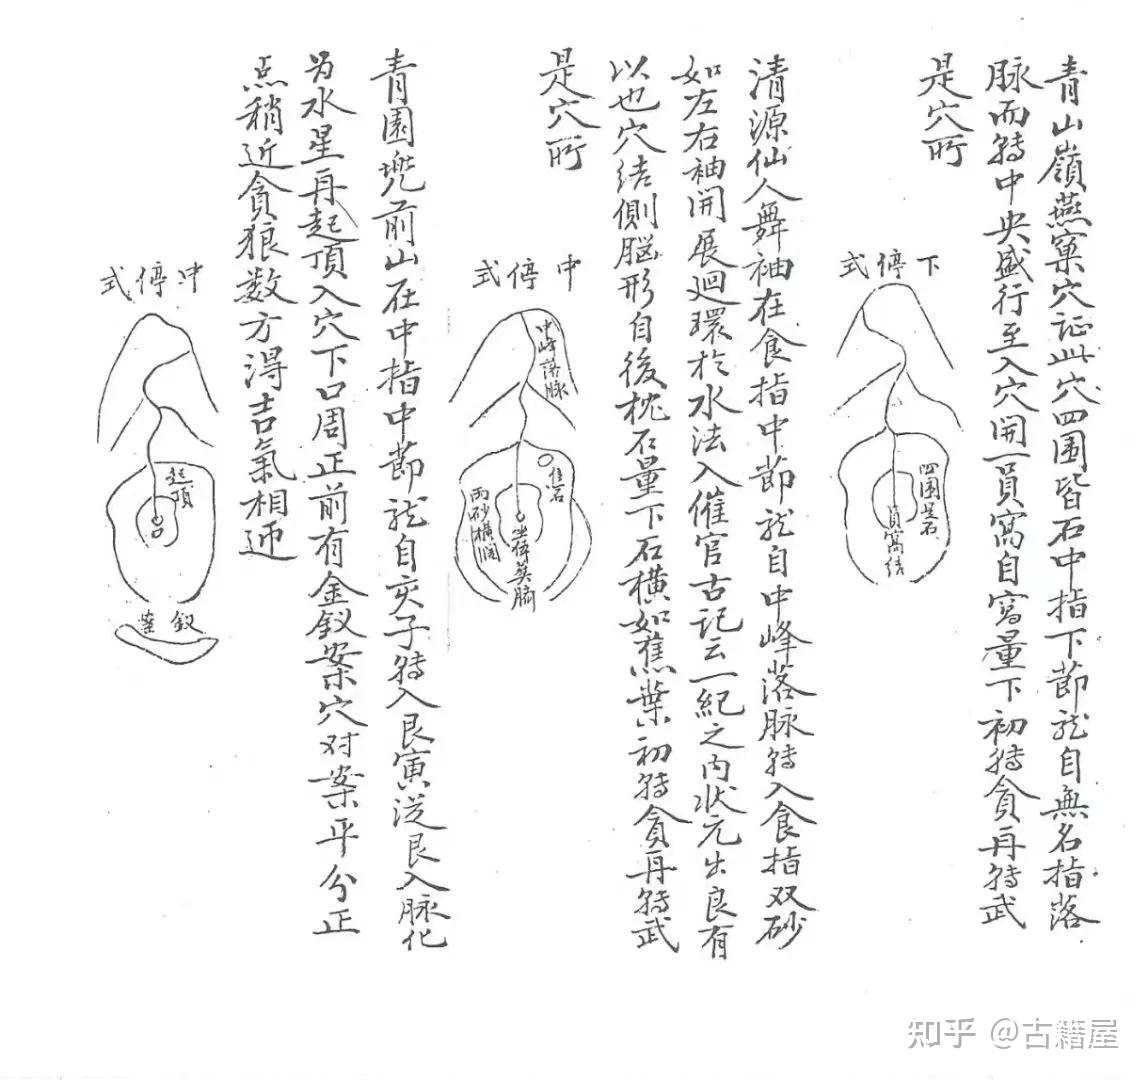 青山嶺燕窠穴证此穴四围皆石中指下節龙自無名指落
脉而转中央盛行至入穴開一員窩自窩量下初转貪再转武
是穴所
下停式
四围是石
員窩结
清源仙人舞袖在食指中節龙自中峰落脉转入食指双砂
如左右袖開展迴環於水法入催官古记云一紀之内状元出良有
以也穴结側脳形自後枕石量下石横如蕉葉初转貪再转武
是穴所
中停式
中峰落脉
两砂横阔
青園兠前山在中指中節龙自亥子转入艮寅従艮入脉化
为水星再起頂入穴下口周正前有金釵案穴对案平分正
点稍近貪狼数方淂吉氣相逓
中停式
起頂
釵案
知乎 @古籍屋